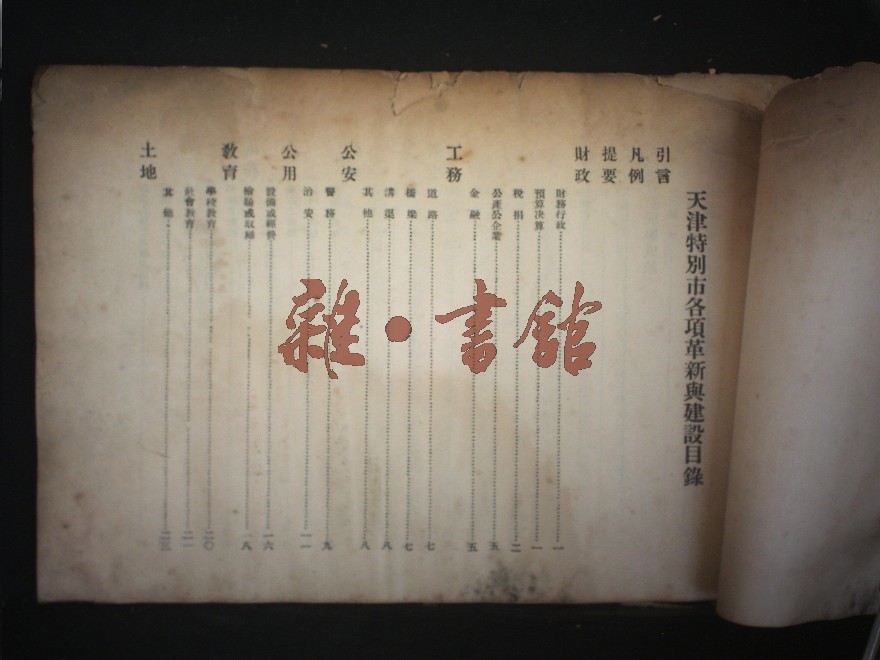 天津特別市各項革新與建設目錄
引言
凡例
提要
財政
財務行政 一
預算決算 一
稅捐 二
公產公企業 五
金融 五
工務
道路 七
橋梁 七
溝渠 八
其他 八
公安
警務 九
治安 一一
公用
設備或經營 一六
檢驗或取締 一八
教育
學校教育 二〇
社會教育 二一
其他
土地
雜・書館